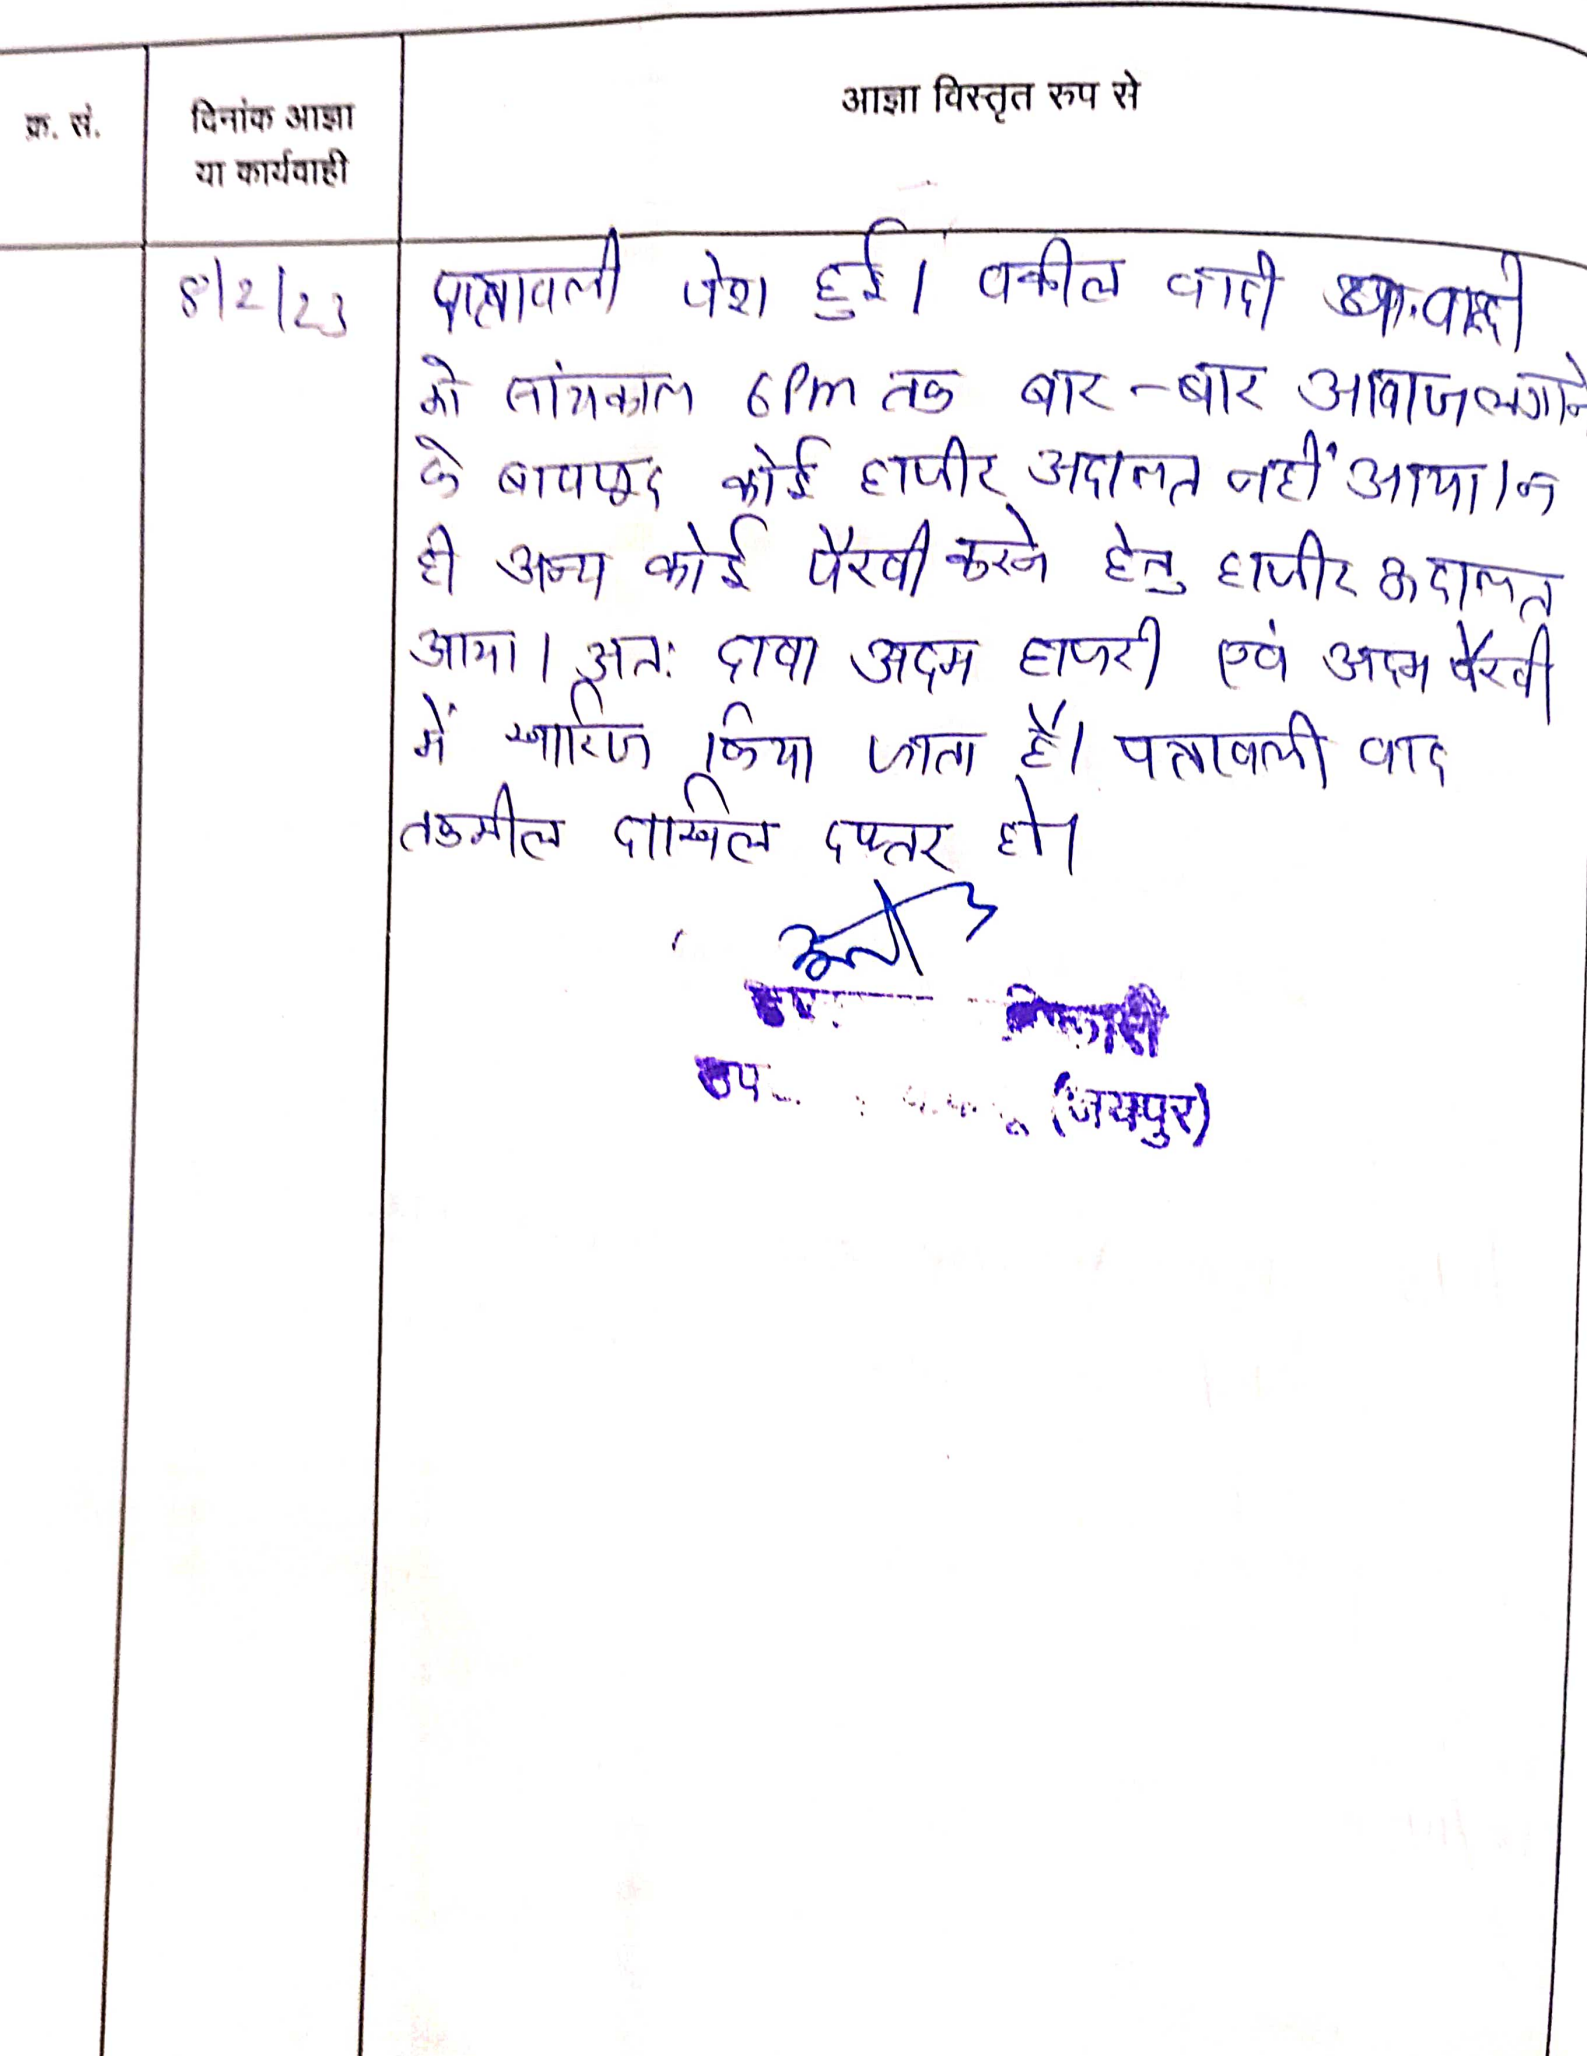 क्र. सं.
दिनांक आज्ञा
या कार्यवाही
आज्ञा विस्तृत रुप से
8/2/23
पत्रावली पेश हुई। वकील वादी
को सांयकाल 6 Pm तक बार-बार आवाज लगाने
के बावजूद कोई हाजीर अदालत नहीं आया। न
ही अन्य कोई पैरवी करने हेतु हाजीर अदालत
आया। अतः दावा अदम हाजरी एवं अदम पैरवी
में खारिज किया जाता है। पत्रावली वाद
तकमील दाखिल दफ्तर हो।
उप
(जयपुर)